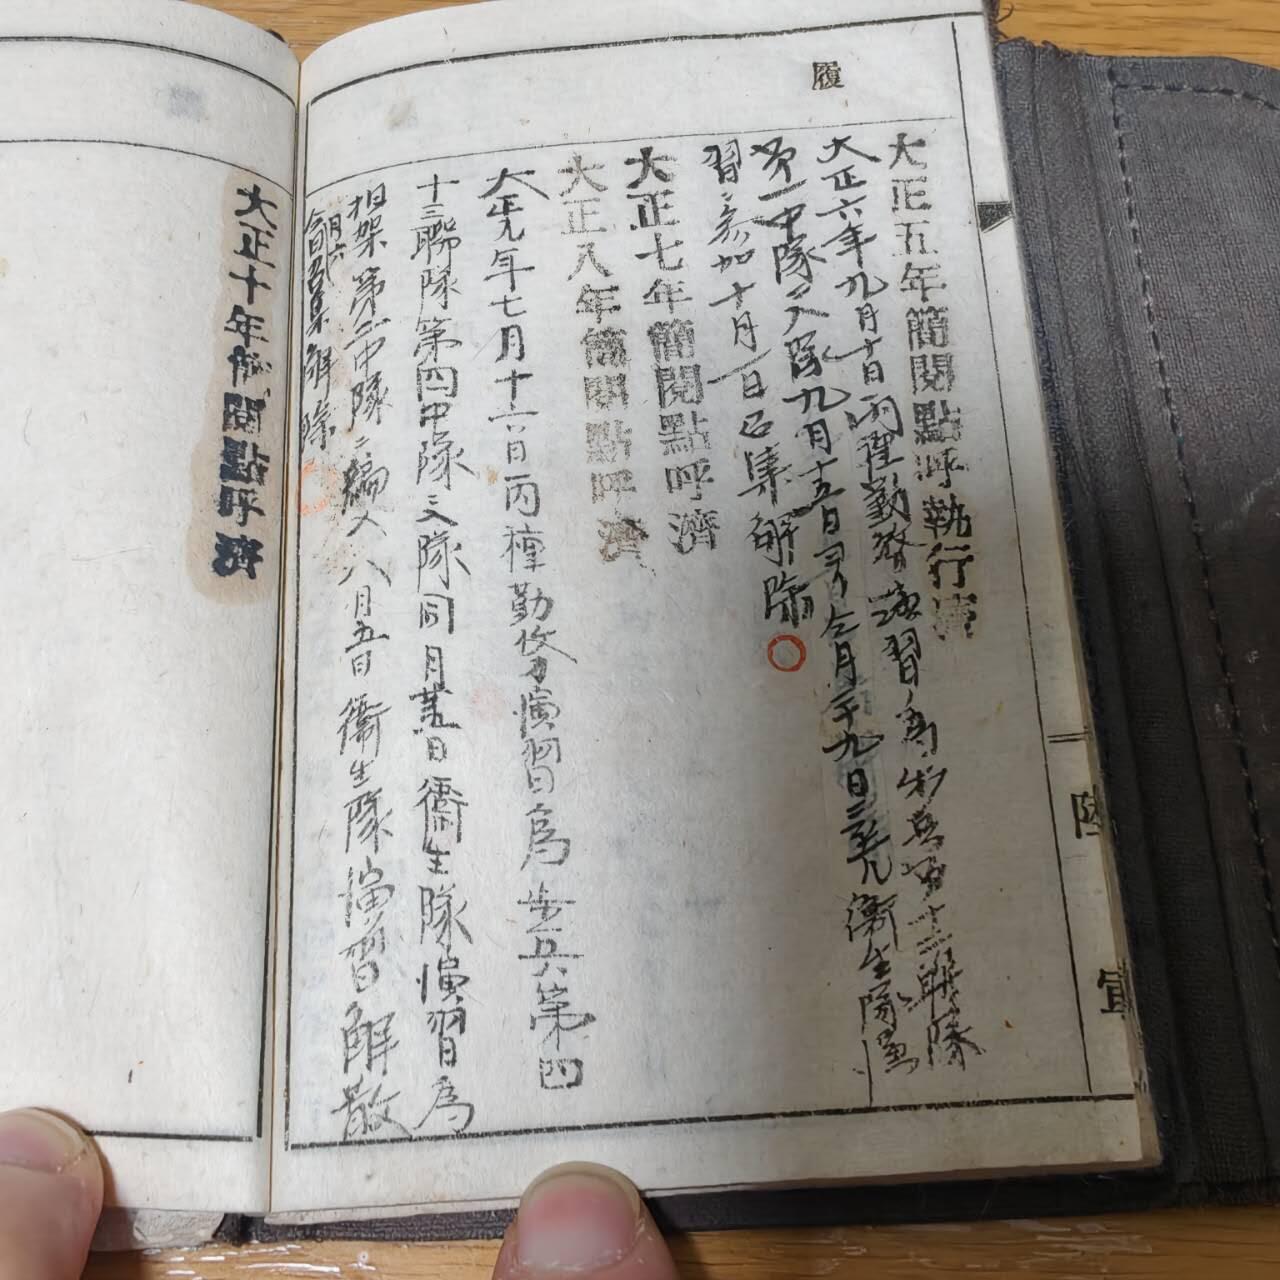 履
大正五年簡閲點呼執行濟
大正六年九月十日丙種勤務演習ノ為歩兵第十二聯隊
第一中隊ニ入隊九月十五日ヨリ仝月二十九日ニ至ル衛生隊演
習ニ参加十月一日召集解除
大正七年簡閲點呼濟
大正八年簡閲點呼濟
大正九年七月十六日丙種勤務演習為歩兵第四
十三聯隊第四中隊ニ入隊同月廿五日衛生隊演習為
担架第二中隊ニ編入八月五日衛生隊演習解散
仝月六日召集解除
大正十年簡閲點呼濟
陸
軍